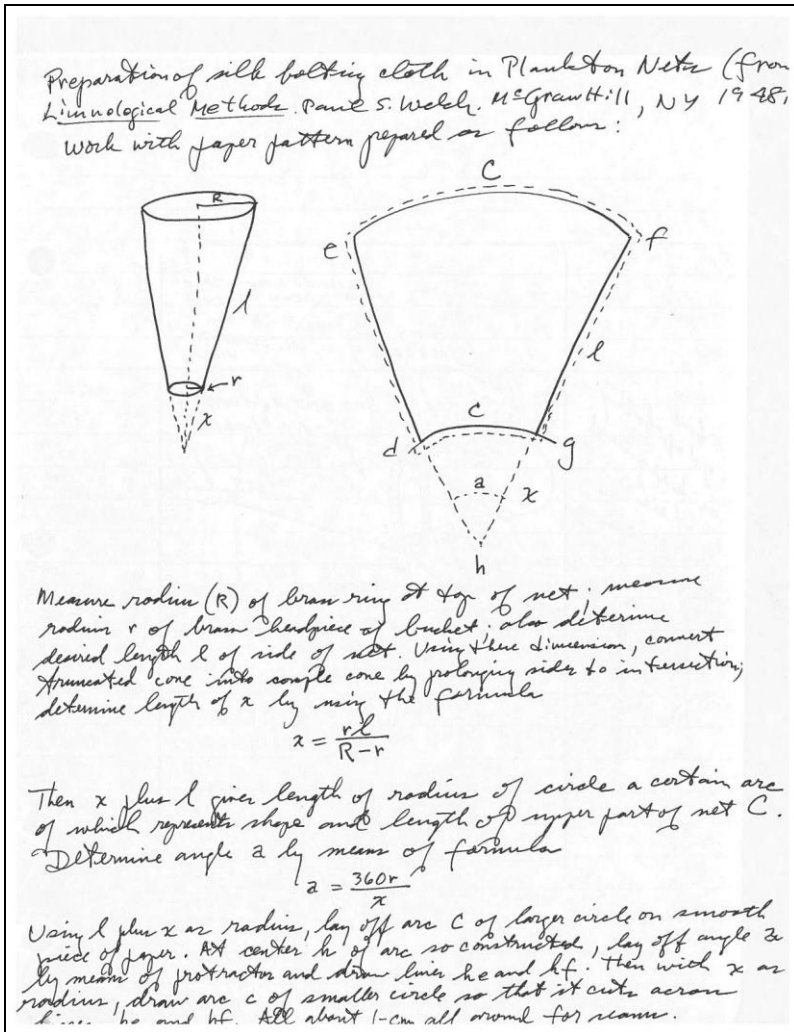 Preparation of silk bolting cloth in Plankton Nets (from
Limnological Methods. Paul S. Welch. McGraw Hill, NY 1948,
Work with paper pattern prepared as follows:
R
C
e
f
l
l
r
c
x
d
g
a
x
h
Measure radius (R) of brass ring at top of net; measure
radius r of brass headpiece of bucket; also determine
desired length l of side of net. Using these dimension, convert
truncated cone into complete cone by prolonging sides to intersection;
determine length of x by using the formula
x = rl / R-r
Then x plus l gives length of radius of circle a certain arc
of which represents shape and length of upper part of net C.
Determine angle a by means of formula
a = 360r / x
Using l plus x as radius, lay off arc C of larger circle on smooth
piece of paper. At center h of arc so constructed, lay off angle a
by means of protractor and draw lines he and hf. Then with x as
radius, draw arc c of smaller circle so that it cuts across
lines he and hf. All about 1-cm all around for seams.